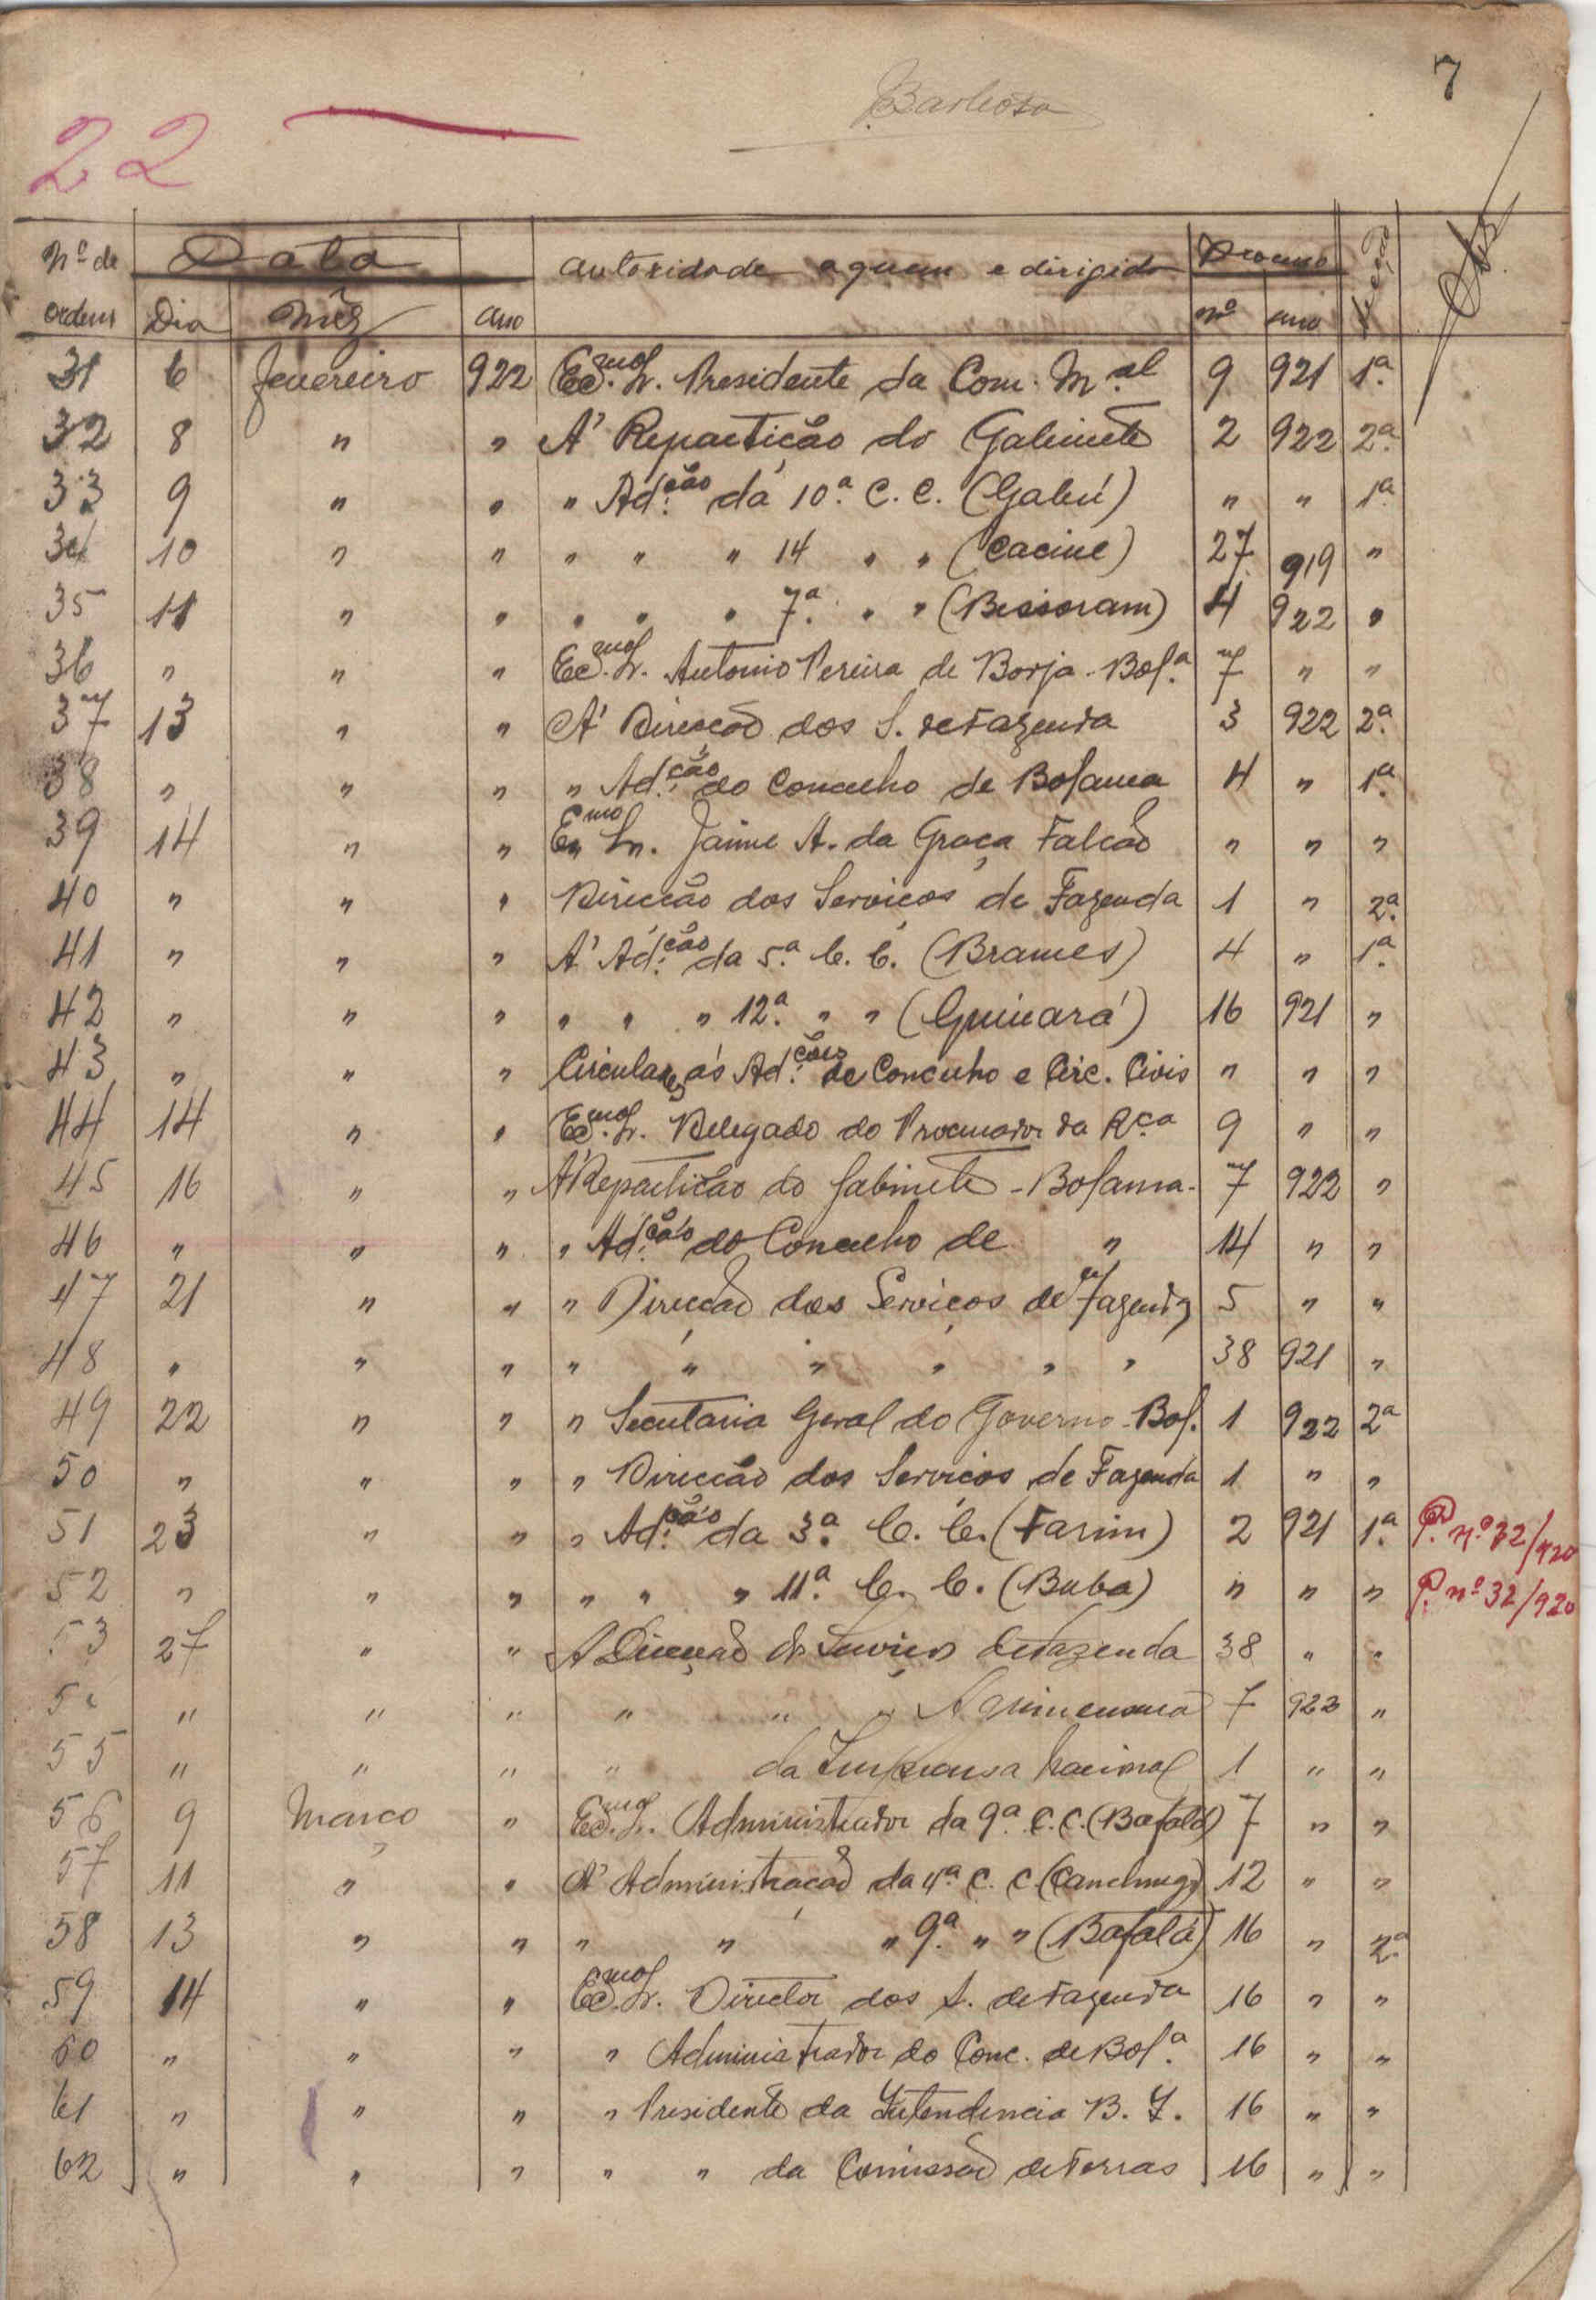 7
Barbosa
22
Nº de Data autoridade a quem e dirigido Processo Secção Obs.
ordem Dia Mêz ano nº ano
31 6 Fevereiro 922 Ex.mo Sr. Presidente da Com. M.al 9 921 1ª
32 8 " " A' Repartição do Gabinete 2 922 2ª
33 9 " " " Ad.ção da 10ª C. C. (Gabú) " " 1ª
34 10 " " " " " 14 " " (Cacine) 27 919 "
35 11 " " " " " 7ª " " (Bissoram) 4 922 "
36 " " " Ex.mo Sr. Antonio Pereira de Borja - Bol.ª 7 " "
37 13 " " A' Direcção dos S. de Fazenda 3 922 2ª
38 " " " " Ad.ção do Concelho de Bolama 4 " 1ª
39 14 " " Ex.mo Sr. Jaime A. da Graça Falcão " " "
40 " " " Direcção dos Serviços de Fazenda 1 " 2ª
41 " " " A' Ad.ção da 5ª C. C. (Brames) 4 " 1ª
42 " " " " " " 12ª " " (Quinará) 16 921 "
43 " " " Circulares ás Ad.ções de Concelho e Circ. Civis " " "
44 14 " " Ex.mo Sr. Delegado do Procurador da Rca 9 " "
45 16 " " A' Repartição do Gabinete - Bolama - 7 922 "
46 " " " " Ad.ção do Concelho de " 14 " "
47 21 " " " Direcção dos Serviços de Fazenda 5 " "
48 " " " " " " " " " 38 921 "
49 22 " " " Secretaria Geral do Governo - Bol. 1 922 2ª
50 " " " " Direcção dos Serviços de Fazenda 1 " "
51 23 " " " Ad.ção da 3ª C. C. (Farim) 2 921 1ª P. nº 32/920
52 " " " " " " 11ª C. C. (Buba) " " " P. nº 32/920
53 27 " " A Direcção dos Serviços de Fazenda 38 " "
5 " " " " " " Agrimensura 7 922 "
55 " " " " da Imprensa Nacional 1 " "
56 9 Março " Ex.mo Sr. Administrador da 9ª C. C. (Bafatá) 7 " "
57 11 " " A' Administração da 4ª C. C. (Canchungo) 12 " "
58 13 " " " " " 9ª " " (Bafatá) 16 " 2ª
59 14 " " Ex.mo Sr. Director dos S. de Fazenda 16 " "
60 " " " " Administrador do Conc. de Bol.ª 16 " "
61 " " " " Presidente da Intendencia B. I. 16 " "
62 " " " " " da Comissão de Terras 16 " "